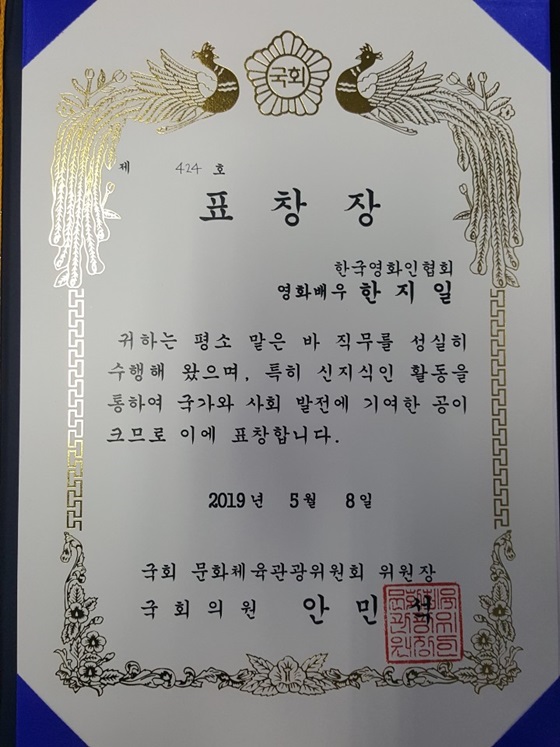 국회
제 424 호
표 창 장
한국영화인협회
영화배우 한 지 일
귀하는 평소 맡은 바 직무를 성실히
수행해 왔으며, 특히 신지식인 활동을
통하여 국가와 사회 발전에 기여한 공이
크므로 이에 표창합니다.
2019년 5월 8일
국회 문화체육관광위원회 위원장
국회의원 안 민 석